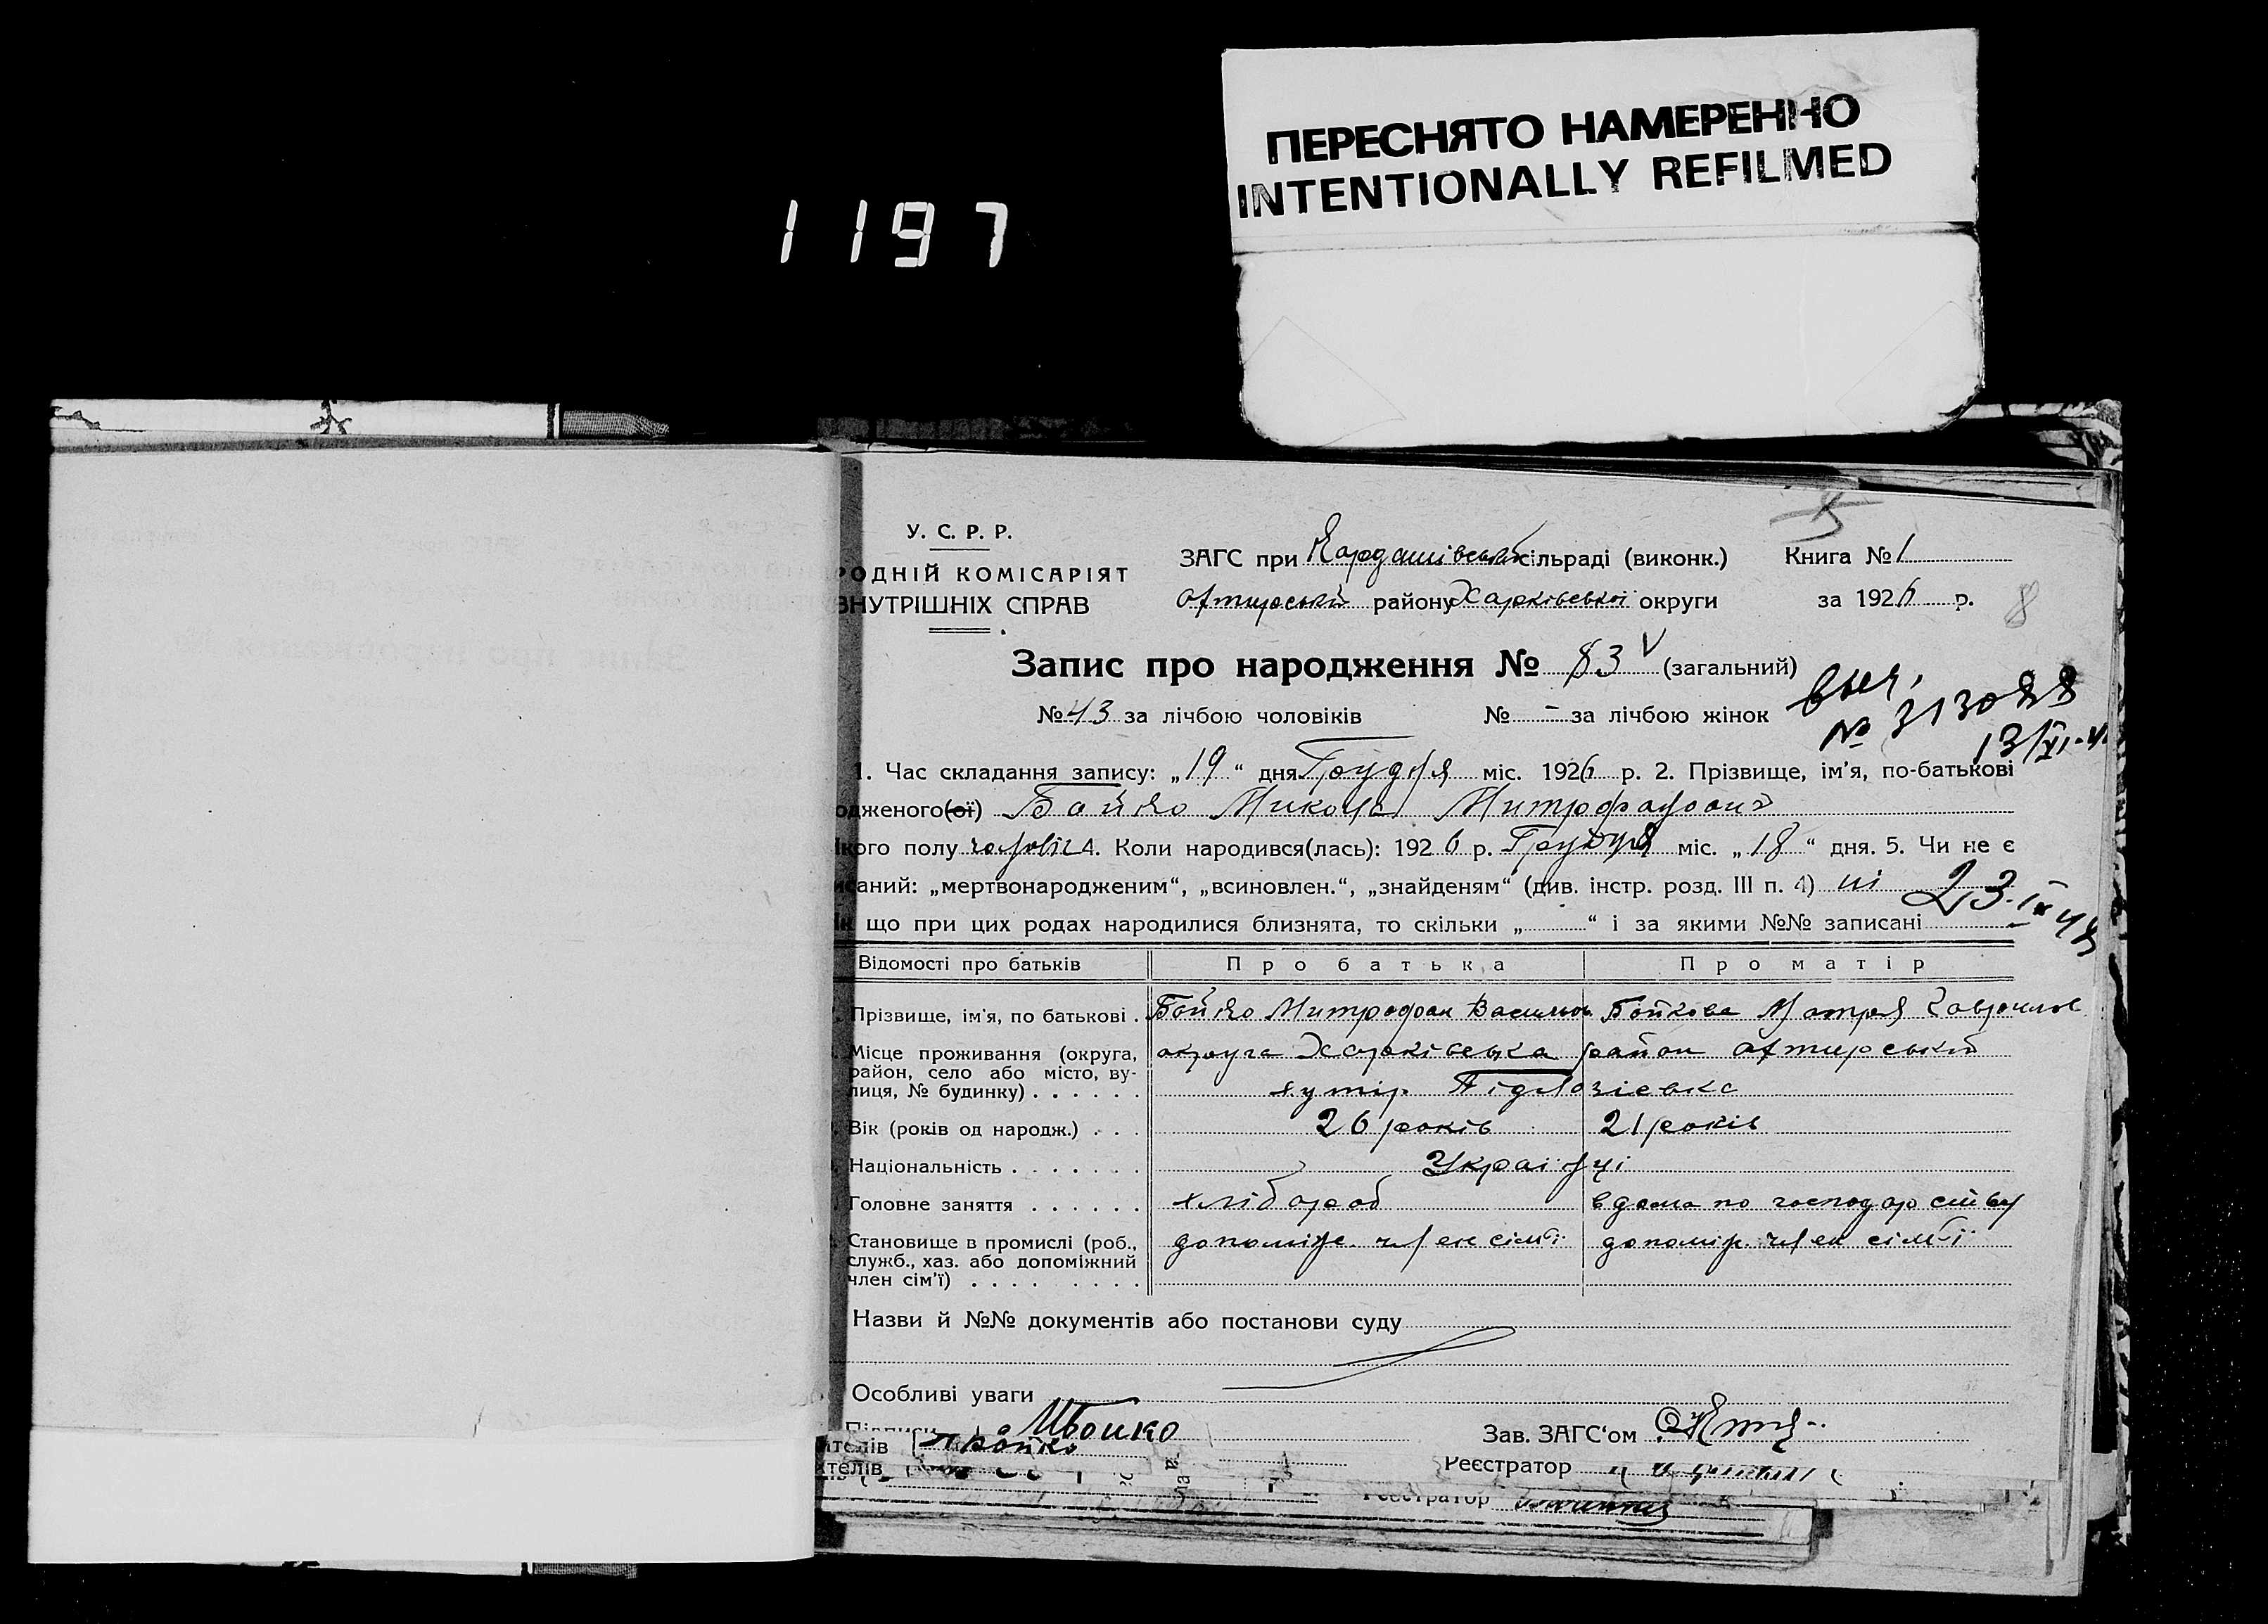 ПЕРЕСНЯТО НАМЕРЕННО
INTENTIONALLY REFILMED
1197
У. С. Р. Р.
РОДНІЙ КОМІСАРІЯТ
ВНУТРІШНІХ СПРАВ
ЗАГС при Кардашівській сільраді (виконк.)
Охтирський району Харківської округи
Книга № 1
за 1926 р.
8
Запис про народження № 83 (загальний)
№ 43 за лічбою чоловіків № - за лічбою жінок
№ 313088
1. Час складання запису: „19“ дня Грудня міс. 1926 р. 2. Прізвище, ім'я, по-батькові
одженого(ої) Бойко Микола Митрофанович
якого полу чоловіч 4. Коли народився(лась): 1926 р. Грудня міс. „18“ дня. 5. Чи не є
исаний: „мертвонародженим“, „всиновлен.“, „знайденям“ (див. інстр. розд. III п. 4) ні
як що при цих родах народилися близнята, то скільки „ “ і за якими №№ записані
Відомості про батьків Про батька Про матір
Прізвище, ім'я, по батькові . Бойко Митрофан Васильов Бойкова Мотря Гаврилов
Місце проживання (округа, район, село або місто, вулиця, № будинку) . . . . . . округа Харківська район Охтирський
хутір Підлозіевка
Вік (років од народж.) . . . 26 років 21 років
Національність . . . . . . . Українці
Головне заняття . . . . . . хлібороб вдома по господарству
Становище в промислі (роб., допоміж. член сім'ї допоміж. член сім'ї
служб., хаз. або допоміжний
член сім'ї) . . . . . . . . .
Назви й №№ документів або постанови суду
Особливі уваги
Підписи МБойко
Зав. ЗАГС'ом
ителів Бойко
ителів
Реєстратор
Реєстратор